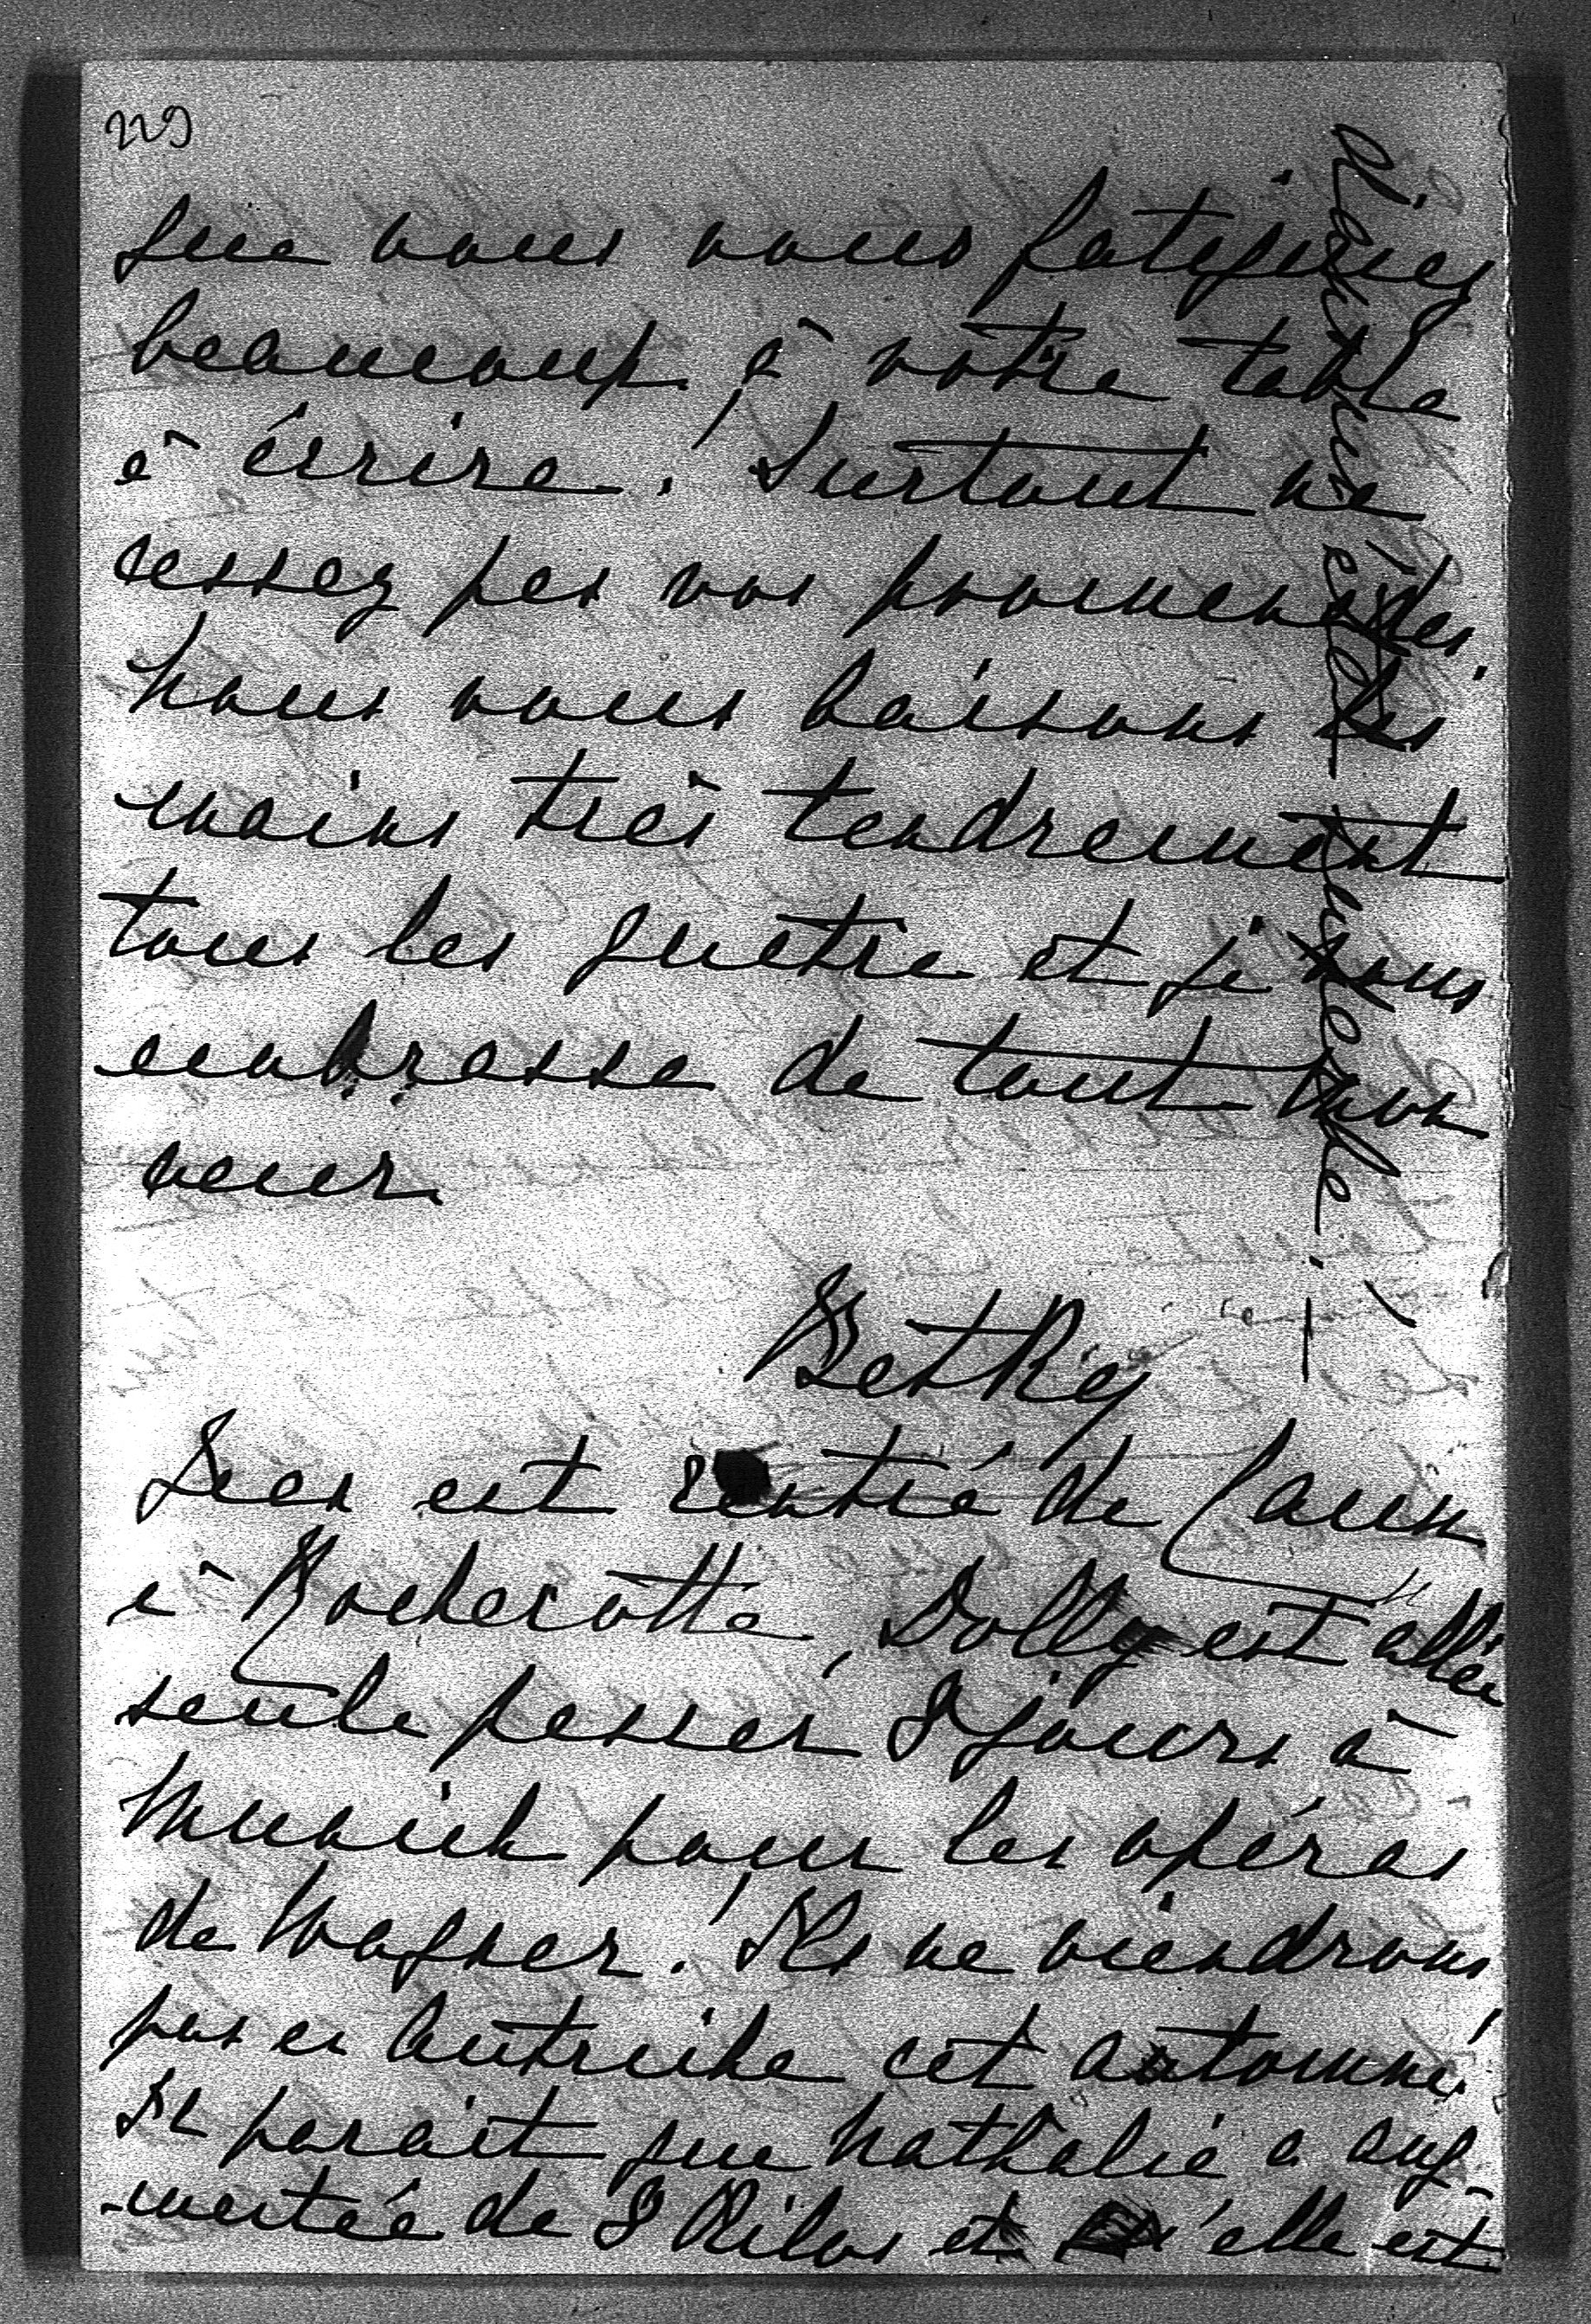 229
que vous vous fatiguiez
beaucoup à votre table
à écrire. Surtout ne
cessez pas vos promenades.
Nous vous baisons les
mains très tendrement
tous les quatre et je vous
embrasse de tout mon
coeur
Betka
est rentré de
à Rochecotte, Dolly est allée
seule passer 8 jours à
Munich pour les opéras
de Wagner. Ils ne viendrons
pas en Autriche cet automne.
Il parait que Nathalie a aug-
-mentée de 8 Kilos et qu'elle est
d'enfant elle ensemble!